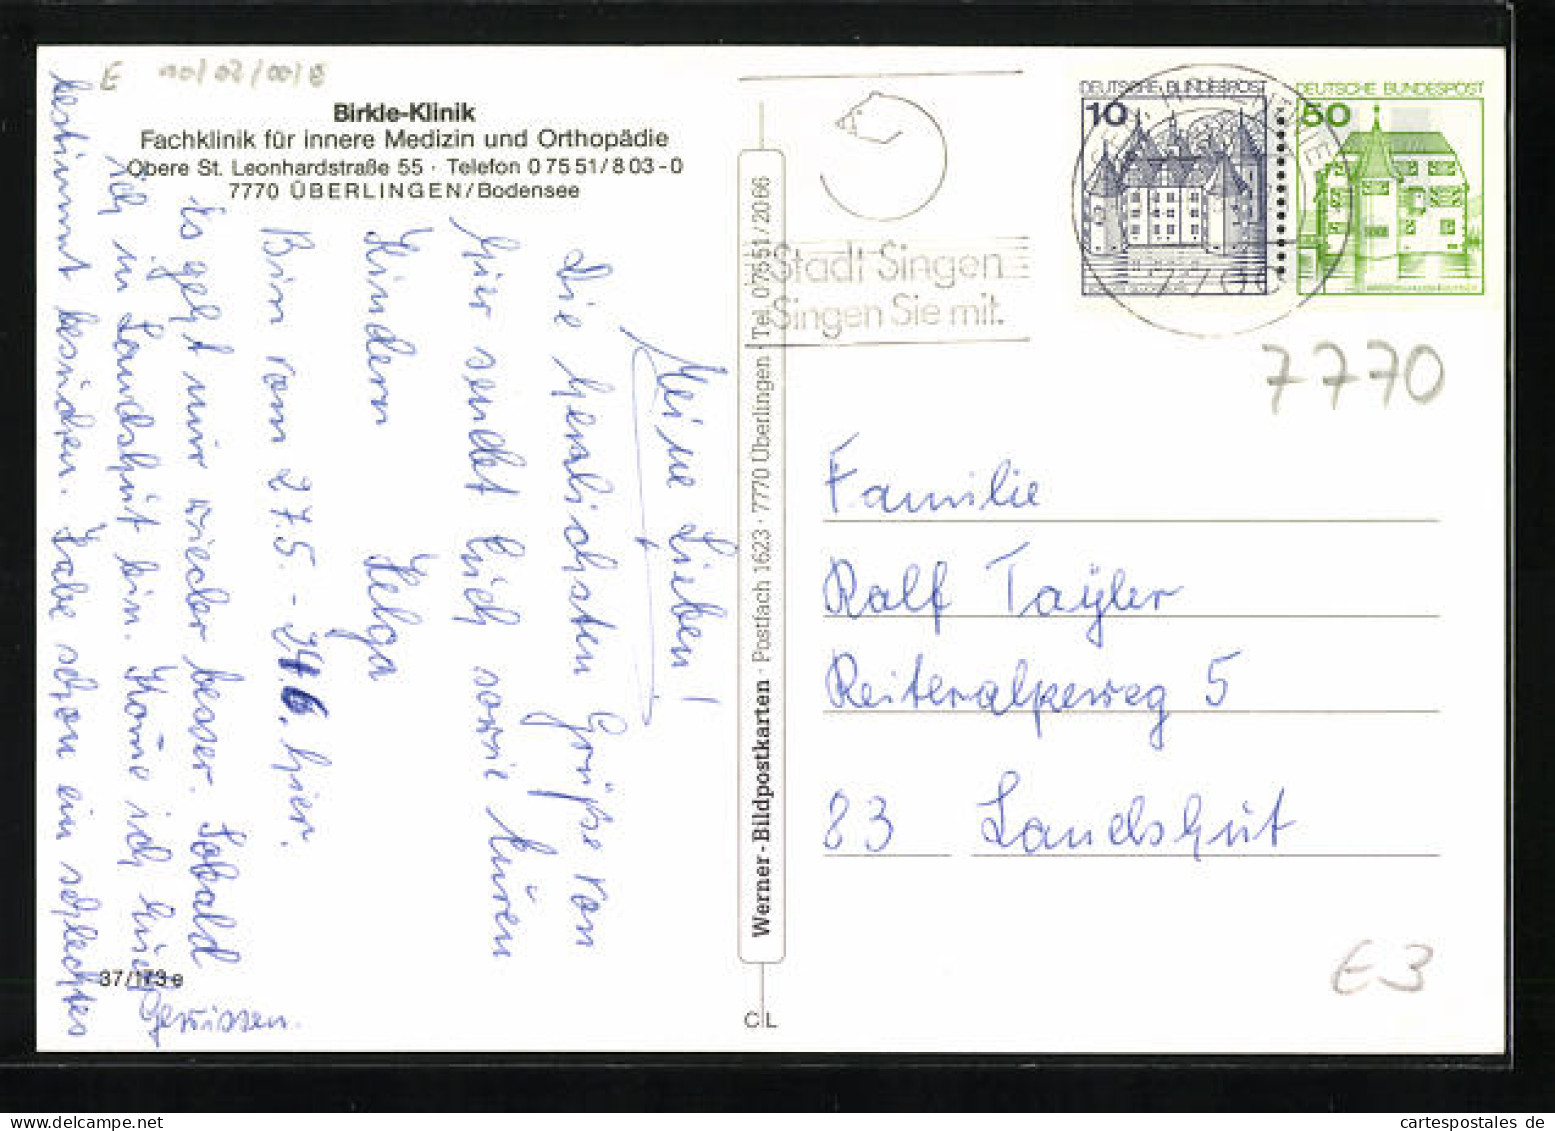 E 10/02/00/8
Birkle-Klinik
Fachklinik für innere Medizin und Orthopädie
Obere St. Leonhardstraße 55 · Telefon 0 75 51/8 03-0
7770 ÜBERLINGEN/Bodensee
Meine Lieben!
Die herzlichsten Grüße von
hier sendet Euch sowie Euren
Kindern Helga
Bin vom 27.5. - 24.6. hier.
Es geht mir wieder besser. Sobald
ich in Landshut bin. Kome ich Euch
bestimmt besuchen. Habe schon ein schlechtes
Gewissen.
37/173 e
Werner-Bildpostkarten · Postfach 1623 · 7770 Überlingen · Tel. 0 75 51/20 66
C L
Stadt Singen
Singen Sie mit.
DEUTSCHE BUNDESPOST
10
DEUTSCHE BUNDESPOST
50
7700
7770
Familie
Ralf Tayler
Reiteralpeweg 5
83 Landshut
E3
cartespostales de